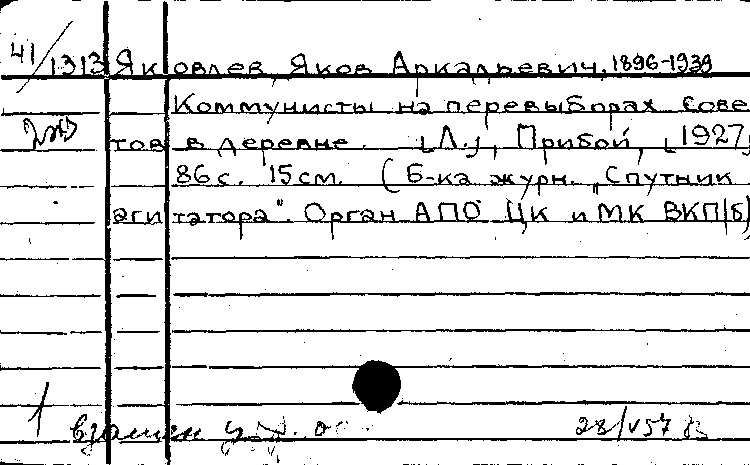 41/1313 Яковлев, Яков Аркадьевич, 1896-1939
Коммунисты на перевыборах Сове
тов в деревне. [Л.], Прибой, [1927]
86с. 15см. (Б-ка журн. „Спутник
агитатора". Орган АПО ЦК и МК ВКП(б)
1 взамен 28/V57